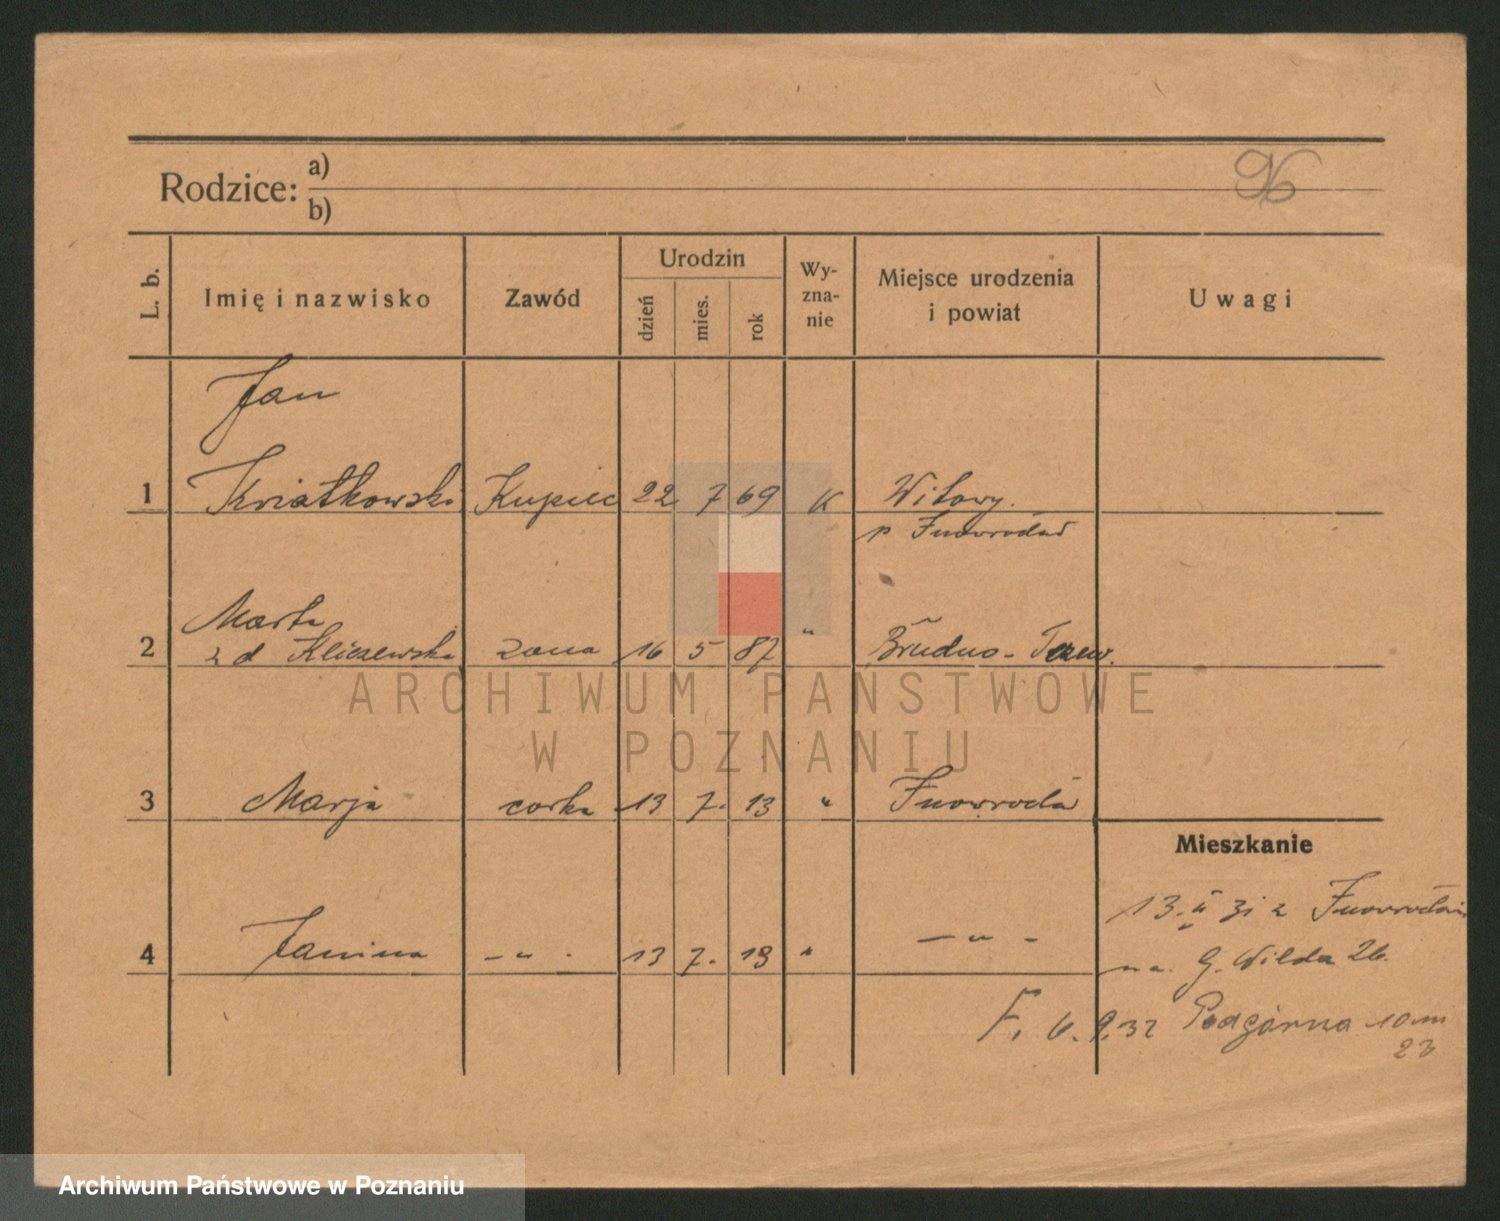 Rodzice: a)
b)
L. b.
Imię i nazwisko
Zawód
Urodzin
dzień
mies.
rok
Wy-
zna-
nie
Miejsce urodzenia
i powiat
Uwagi
Jan
1 Kwiatkowski Kupiec 22 7 69 K Witowy.
p Inowrocław
Marta
2 z d Kliczewska żona 16 5 87 " Brudno -
3 Marja corka 13 7. 13 " Inowrocła
Mieszkanie
13. II 31 z Inowrocławia
4 Janina - " - 13 7. 13 " - " -
na G. Wilda 26.
F. 6. 9. 32 Podgórna 10 m
23
ARCHIWUM PAŃSTWOWE
W POZNANIU
Archiwum Państwowe w Poznaniu